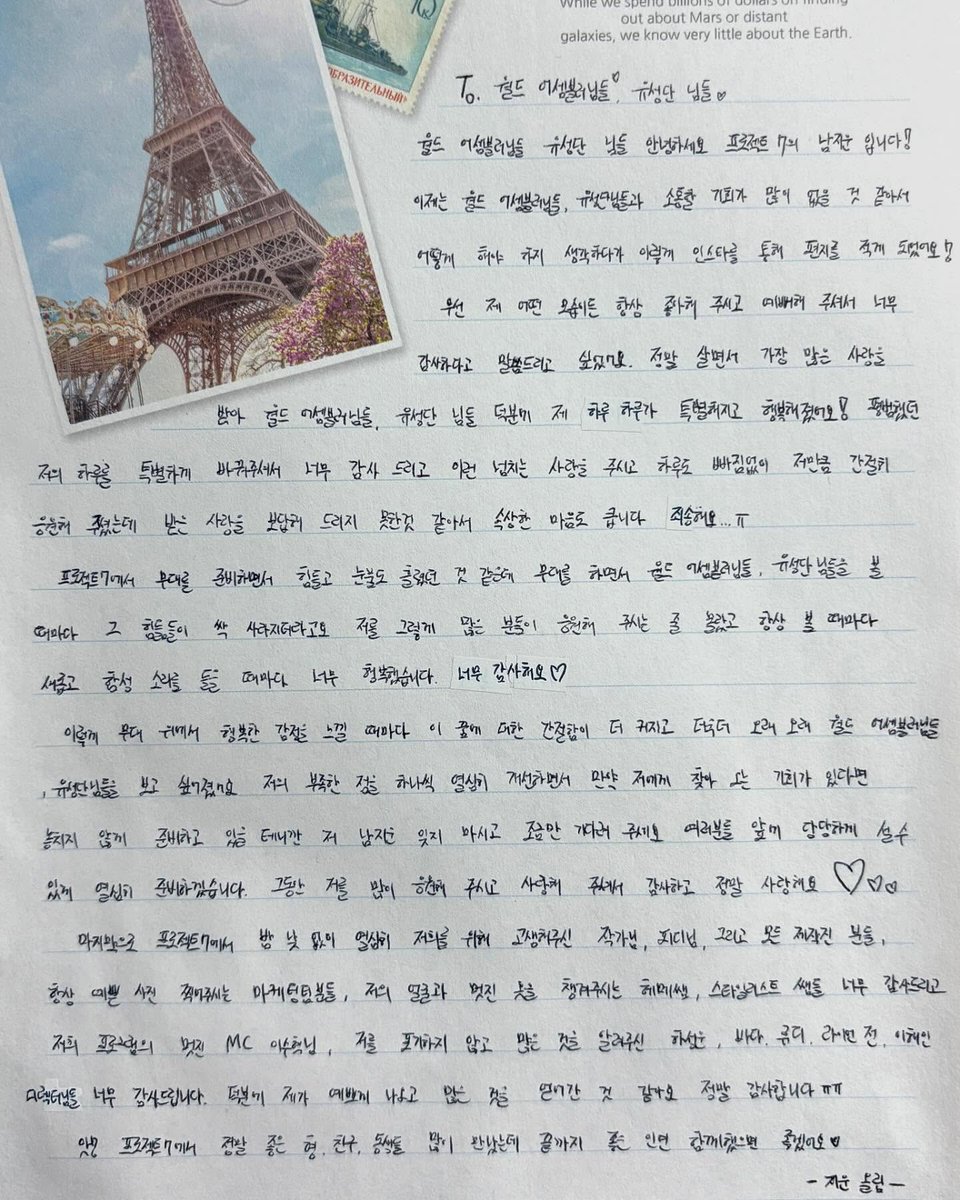 While we spend billions of dollars on finding
out about Mars or distant
galaxies, we know very little about the Earth.
ОБРАЗИТЕЛЬНЫЙ
To. 월드 어셈블러님들♡, 유성단 님들♡
월드 어셈블러님들 유성단 님들 안녕하세요 프로젝트 7의 남지운 입니다!
이제는 월드 어셈블러님들, 유성단님들과 소통할 기회가 많이 없을 것 같아서
어떻게 해야 하지 생각하다가 이렇게 인스타를 통해 편지를 적게 되었어요!
우선 제 어떤 모습이든 항상 좋아해 주시고 예뻐해 주셔서 너무
감사하다고 말씀드리고 싶었어요. 정말 살면서 가장 많은 사랑을
받아 월드 어셈블러님들, 유성단 님들 덕분에 제 하루 하루가 특별해지고 행복해졌어요! 평범했던
저의 하루를 특별하게 바꿔주셔서 너무 감사 드리고 이런 넘치는 사랑을 주시고 하루도 빠짐없이 저만큼 간절히
응원해 주셨는데 받은 사랑을 보답해 드리지 못한것 같아서 속상한 마음도 큽니다 죄송해요...ㅠ
프로젝트7에서 무대를 준비하면서 힘들고 눈물도 흘렸던 것 같은데 무대를 하면서 월드 어셈블러님들, 유성단님들을 볼
때마다 그 힘듦들이 싹 사라지더라고요 저를 그렇게 많은 분들이 응원해 주시는 줄 몰랐고 항상 볼 때마다
새롭고 함성 소리를 들을 때마다 너무 행복했습니다. 너무 감사해요♡
이렇게 무대 위에서 행복한 감정을 느낄 때마다 이 꿈에 대한 간절함이 더 커지고 더욱더 오래 오래 월드 어셈블러님들
, 유성단님들을 보고 싶어졌어요 저의 부족한 점을 하나씩 열심히 개선하면서 만약 저에게 찾아 오는 기회가 있다면
놓치지 않게 준비하고 있을 테니깐 저 남지운 잊지 마시고 조금만 기다려 주세요 여러분들 앞에 당당하게 설 수
있게 열심히 준비하겠습니다. 그동안 저를 많이 응원해 주시고 사랑해 주셔서 감사하고 정말 사랑해요 ♡♡♡
마지막으로 프로젝트7에서 밤 낮 없이 열심히 저희를 위해 고생해주신 작가님, 피디님, 그리고 모든 제작진 분들,
항상 예쁜 사진 찍어주시는 마케팅팀분들, 저의 얼굴과 멋진 옷을 챙겨주시는 헤메쌤, 스타일리스트 쌤들 너무 감사드리고
저희 프로그램의 멋진 MC 이수혁님, 저를 포기하지 않고 많은 것을 알려주신 하성운, 바다, 큠디, 라이언 전, 이해인
디렉터님들 너무 감사드립니다. 덕분에 제가 예쁘게 나오고 많은 것을 얻어간 것 같아요 정말 감사합니다 ㅠㅠ
앗! 프로젝트7에서 정말 좋은 형, 친구, 동생들 많이 만났는데 끝까지 좋은 인연 함께했으면 좋겠어요♡
- 지운 올림 -